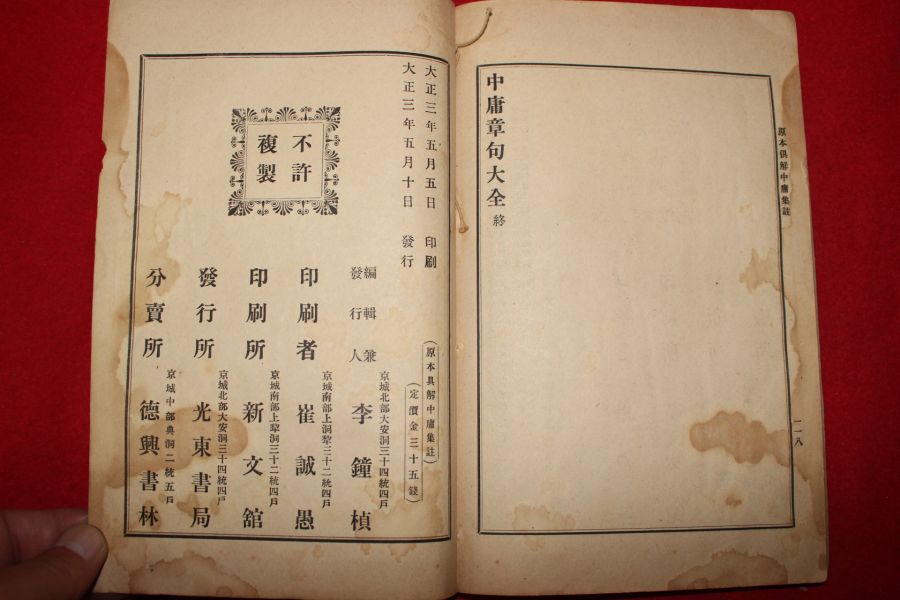 原本俱解中庸集註
二八
中庸章句大全 終
大正三年五月五日 印刷
大正三年五月十日 發行
不許
複製
(原本具解中庸集註)
(定價金三十五錢)
編輯兼
發行人
京城北部大安洞三十四統四戶
李鐘楨
印刷者
京城南部上犂洞三十二統四戶
崔誠愚
印刷所
京城南部上犂洞三十二統四戶
新文舘
發行所
京城北部大安洞三十四統四戶
光東書局
分賣所
京城中部典洞二統五戶
德興書林